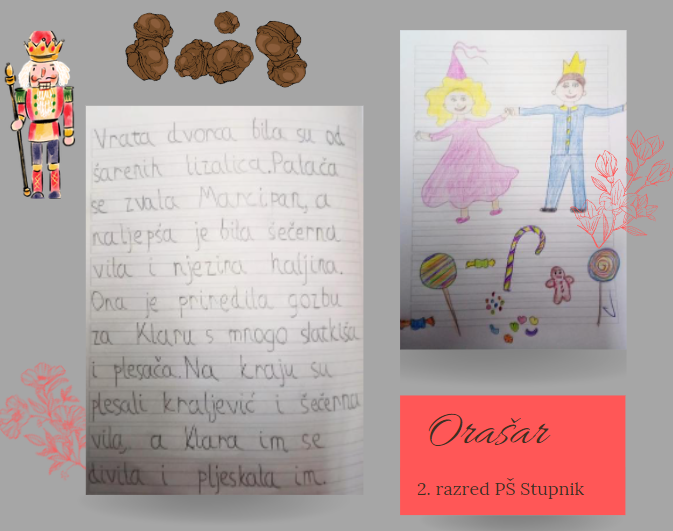 Vrata dvorca bila su od
šarenih lizalica.Palača
se zvala Marcipan, a
naljepša je bila šečerna
vila i njezina haljina.
Ona je priredila gozbu
za Klaru s mnogo slatkiša
i plesača.Na kraju su
plesali kraljević i šećerna
vila, a Klara im se
divila i pljeskala im.
Orašar
2. razred PŠ Stupnik